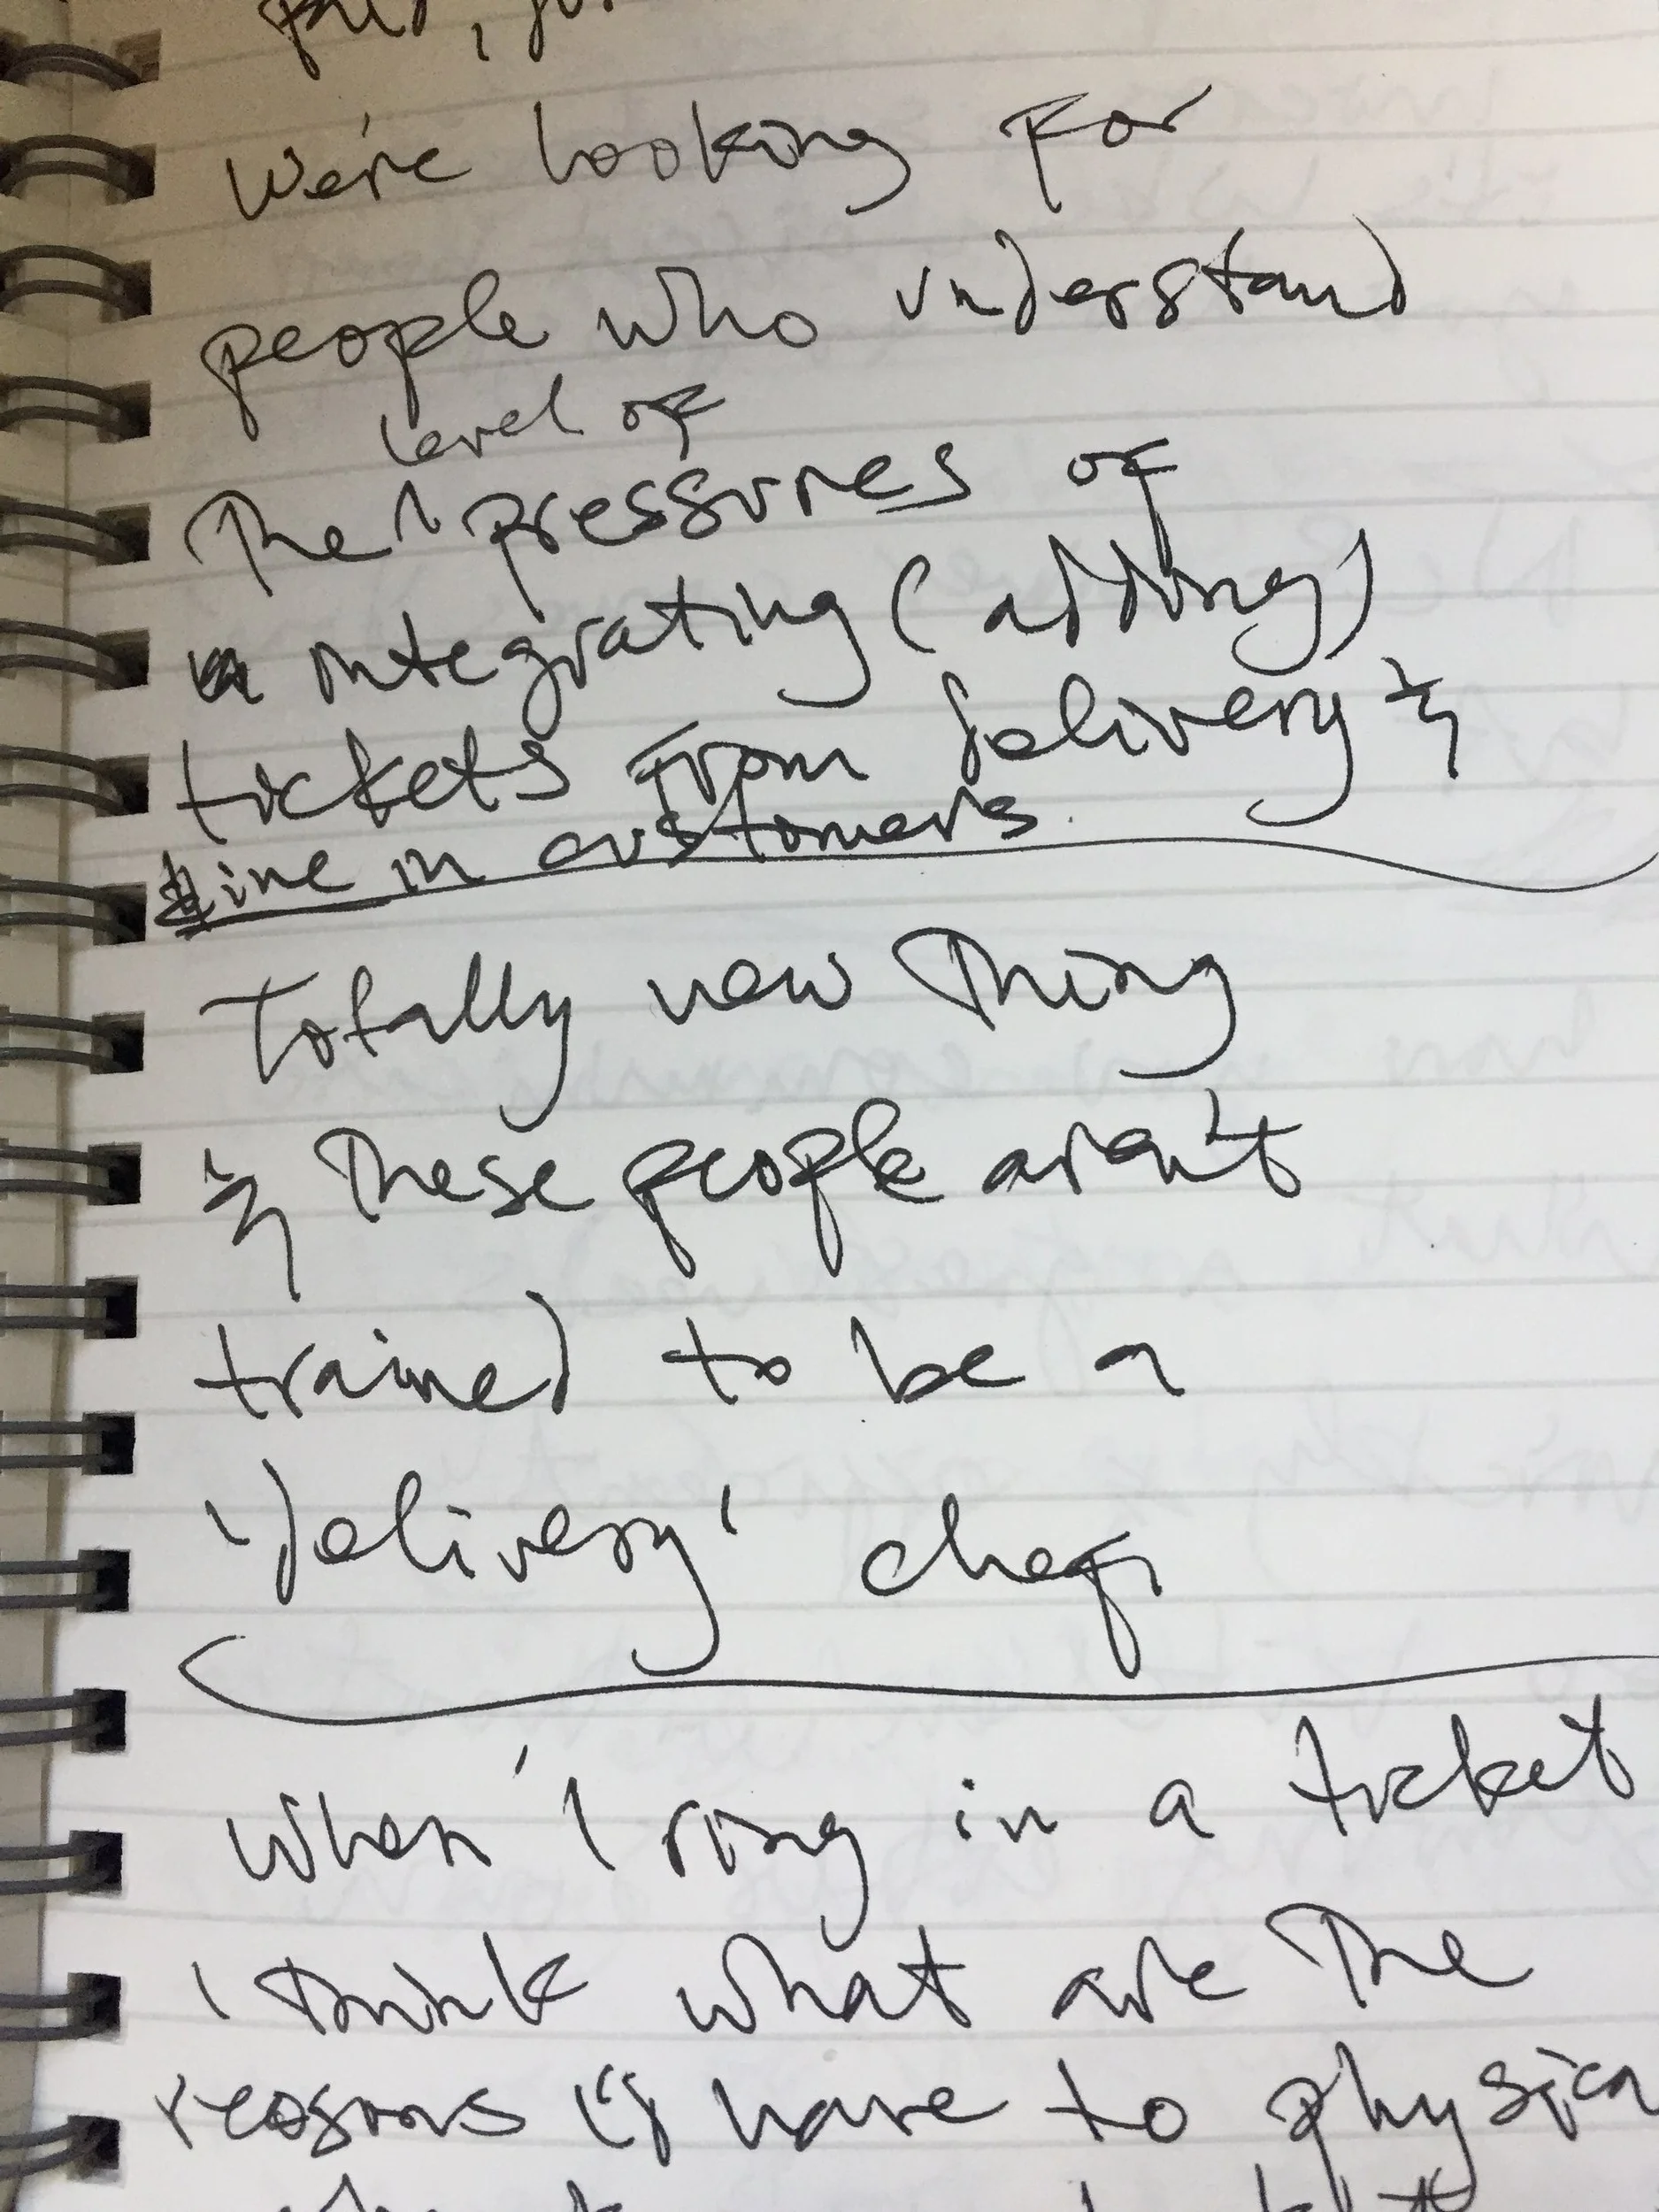 We're looking for
people who understand
level of
The ^ pressures of
integrating (adding)
tickets from delivery &
dine in customers.
Totally new thing
& these people aren't
trained to be a
'delivery' chef,
When I ring in a ticket
I think what are the
reasons I'd have to physica